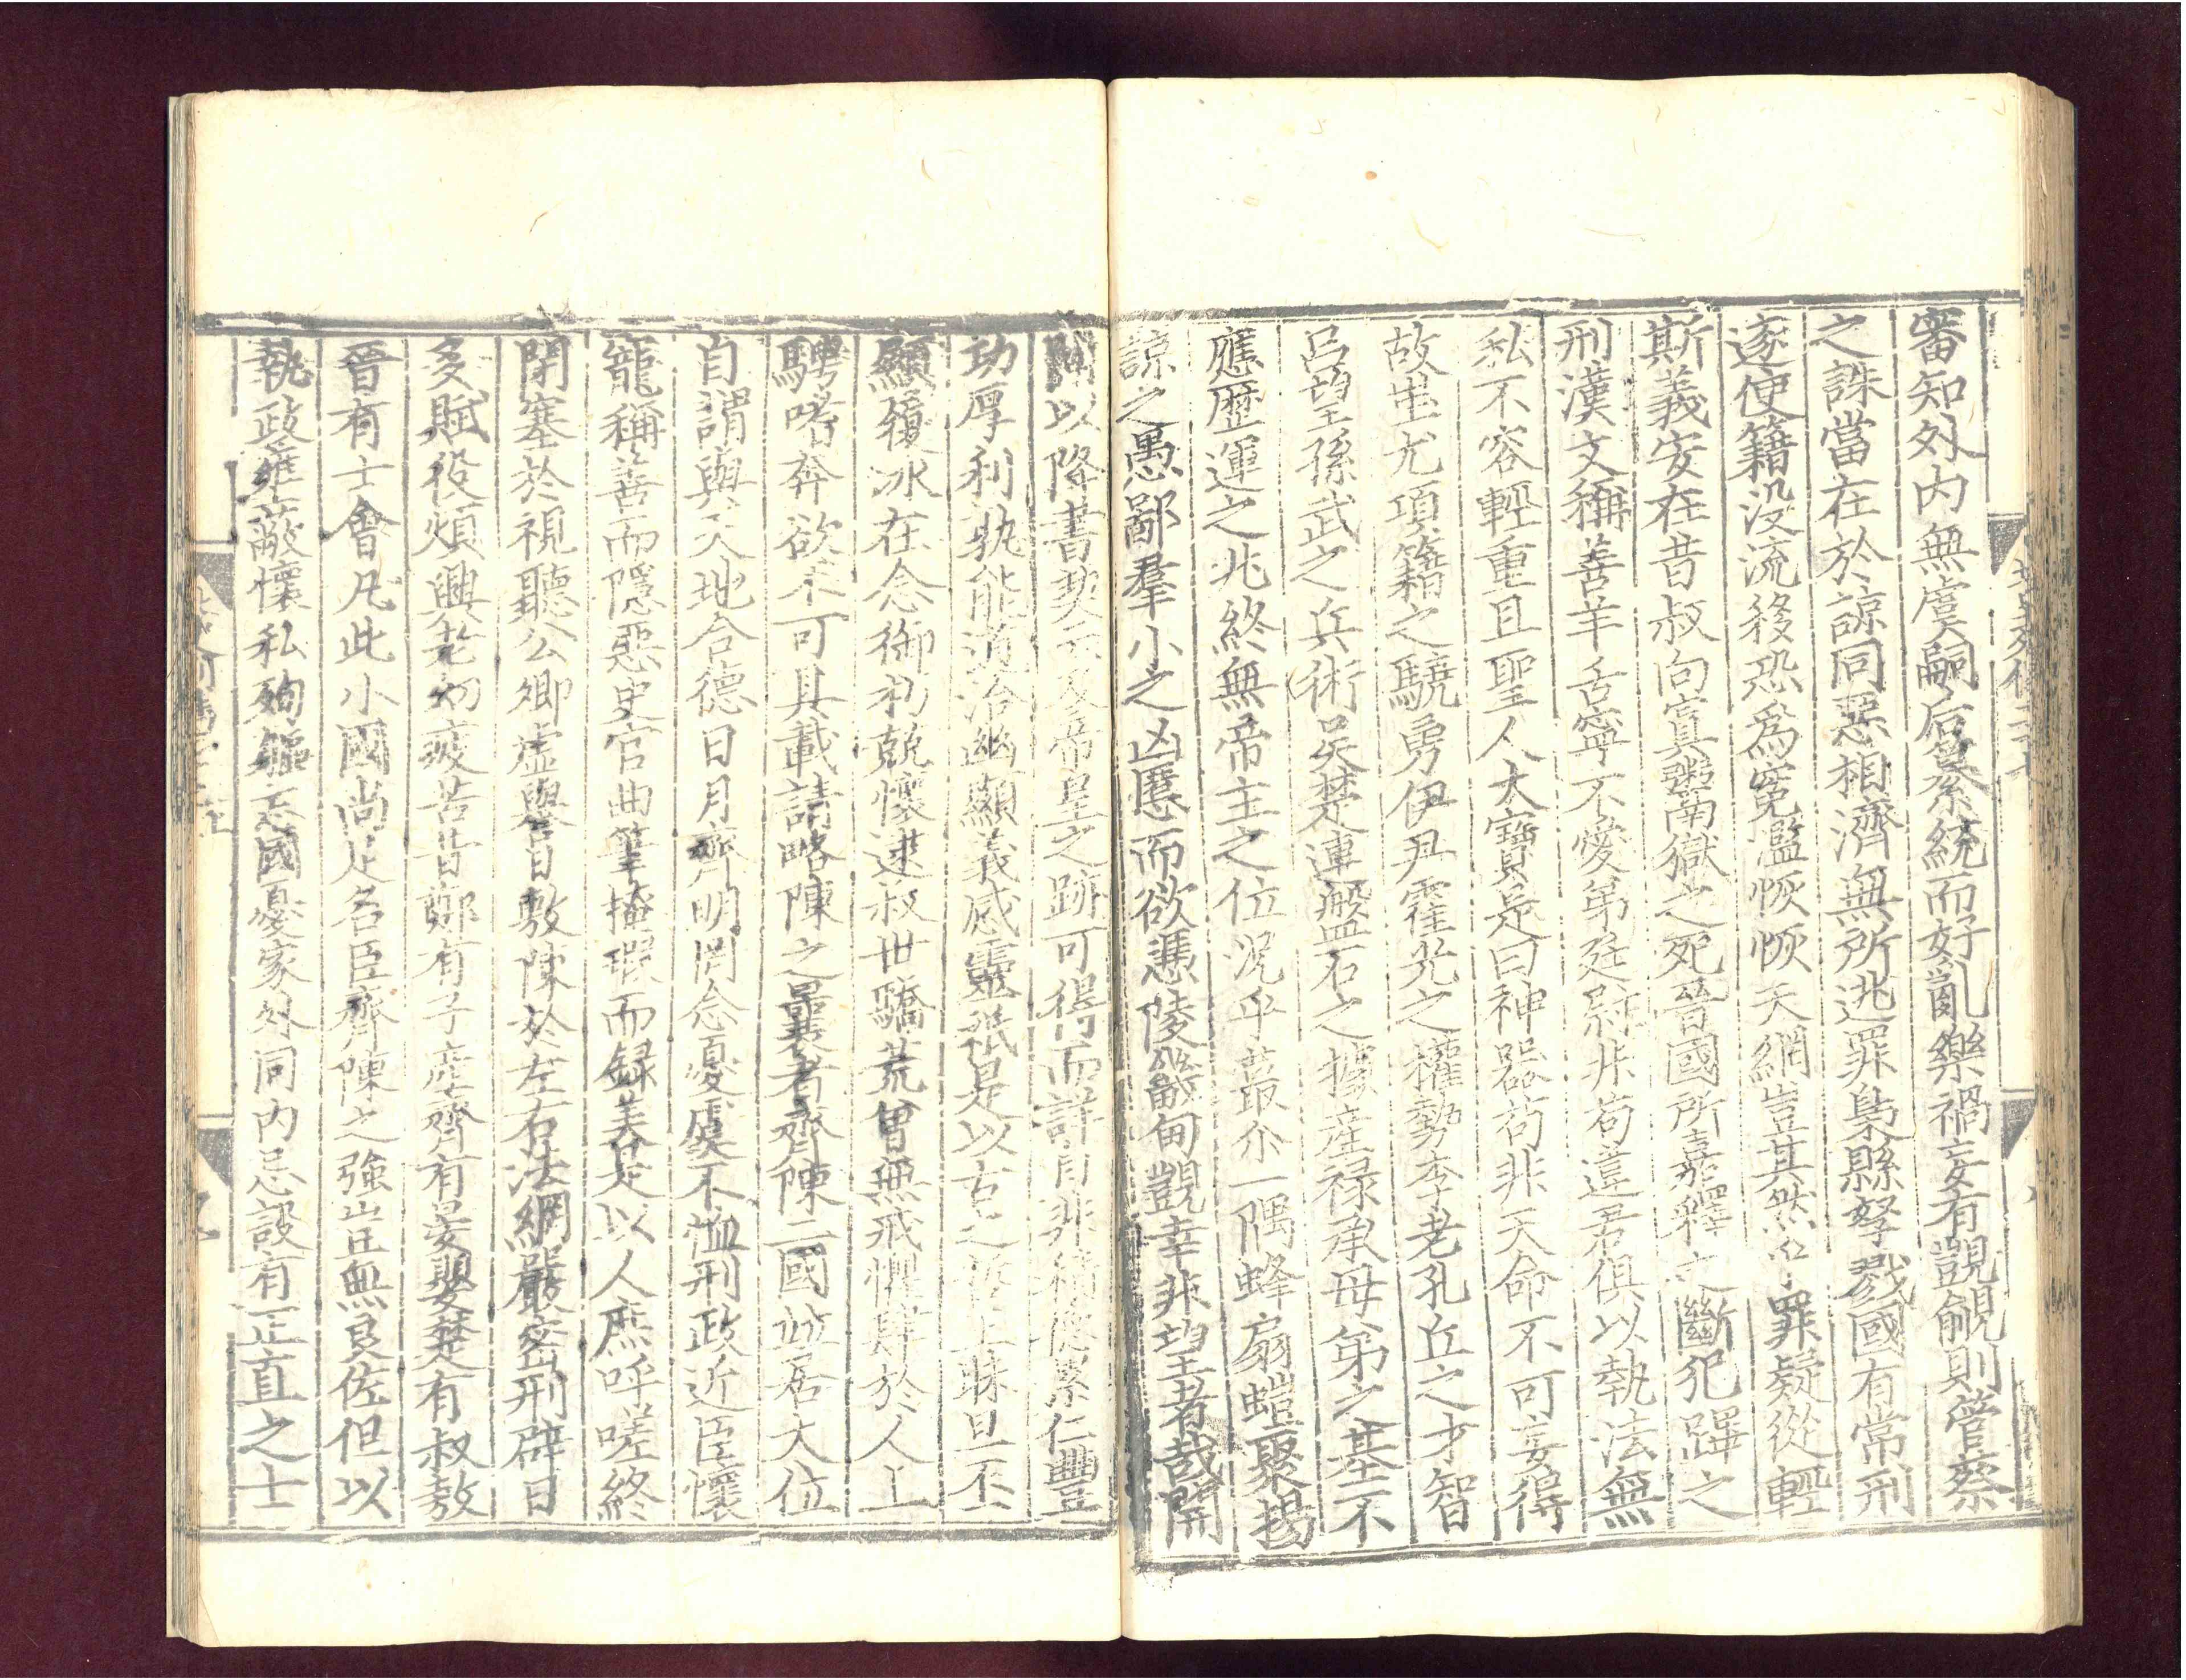 審知外内無虞嗣后纂統而好亂樂禍妄有覬覦則管蔡
之誅當在於諒同惡相濟無所逃罪梟縣孥戮國有常刑
遂使籍没流移恐爲寃濫恢恢天網豈其然乎罪疑從輕
斯義安在昔叔向寘鬻獄之死晉國所嘉釋之斷犯蹕之
刑漢文稱善羊舌寧不愛弟廷尉非苟違君俱以執法無
私不容輕重且聖人大寶是曰神器苟非天命不可妄得
故蚩尤項籍之驍勇伊尹霍光之權勢李老孔丘之才智
吕望孫武之兵術吴楚連盤石之據産禄承母弟之基不
應歷運之兆終無帝主之位况乎蕞尒一隅蜂扇螘聚揚
諒之愚鄙羣小之凶慝而欲憑陵畿甸覬幸非望者哉開
闢以降書契云及帝皇之跡可得而詳自非積德累仁豐
功厚利孰能道洽幽顯義感靈祇是以古之哲王昧旦丕
顯履冰在念御朽兢懷逮叔世驕荒曾無戒懼肆於人上
騁嗜奔欲不可具載請略陳之曩者齊陳二國並居大位
自謂與天地合德日月齊明罔念憂虞不恤刑政近臣懷
寵稱善而隱惡史官曲筆掩瑕而録美是以人庶呼嗟終
閉塞於視聽公卿虛譽日敷陳於左右法網嚴密刑辟日
多賦役煩興老幼疲苦昔鄭有子産齊有晏嬰楚有叔敖
晉有士會凡此小國尚足名臣齊陳之強豈無良佐但以
執政壅蔽懷私殉軀忘國憂家外同内忌設有正直之士